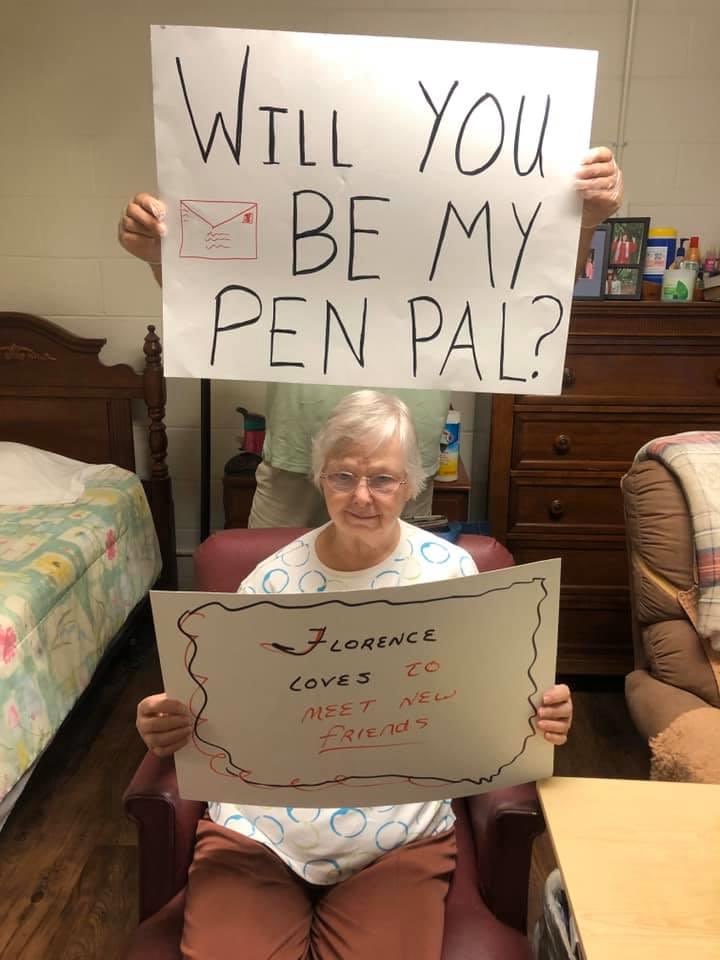 WILL YOU
BE MY
PEN PAL?
FLORENCE
LOVES TO
MEET NEW
FRIENDS